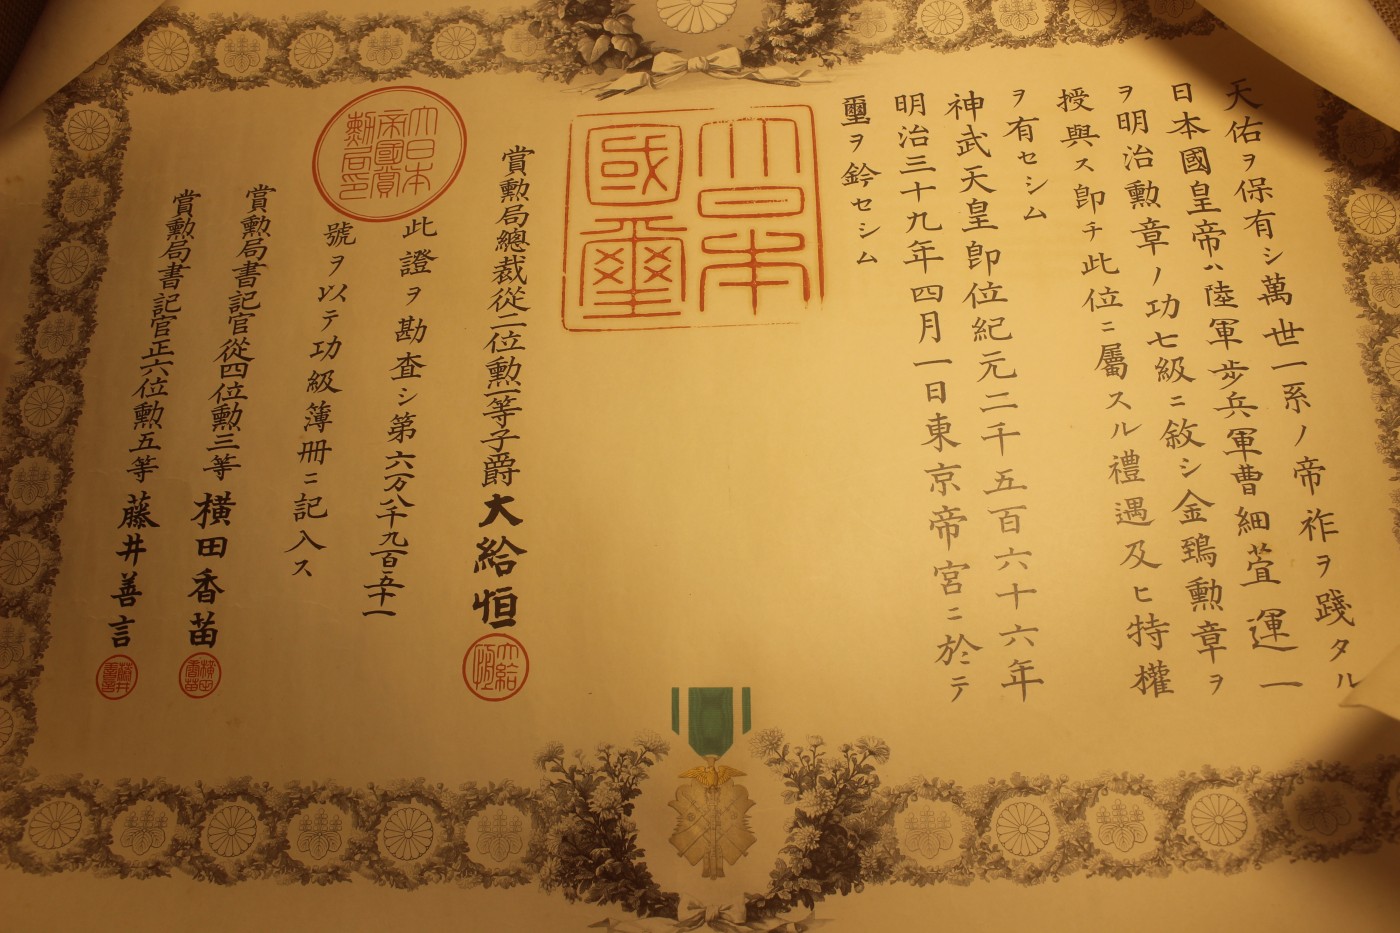 天佑ヲ保有シ萬世一系ノ帝祚ヲ踐タル
日本國皇帝ハ陸軍步兵軍曹細萱運一
ヲ明治勲章ノ功七級ニ敘シ金鵄勲章ヲ
授與ス卽チ此位ニ屬スル禮遇及ヒ特權
ヲ有セシム
神武天皇卽位紀元二千五百六十六年
明治三十九年四月一日東京帝宮ニ於テ
璽ヲ鈐セシム
大日本國璽
賞勲局總裁從二位勲一等子爵大給恒
大給恒
此證ヲ勘査シ第六万八千九百五十一
號ヲ以テ功級簿册ニ記入ス
大日本帝國賞勲局印
賞勲局書記官從四位勲三等橫田香苗
橫田香苗
賞勲局書記官正六位勲五等藤井善言
藤井善言